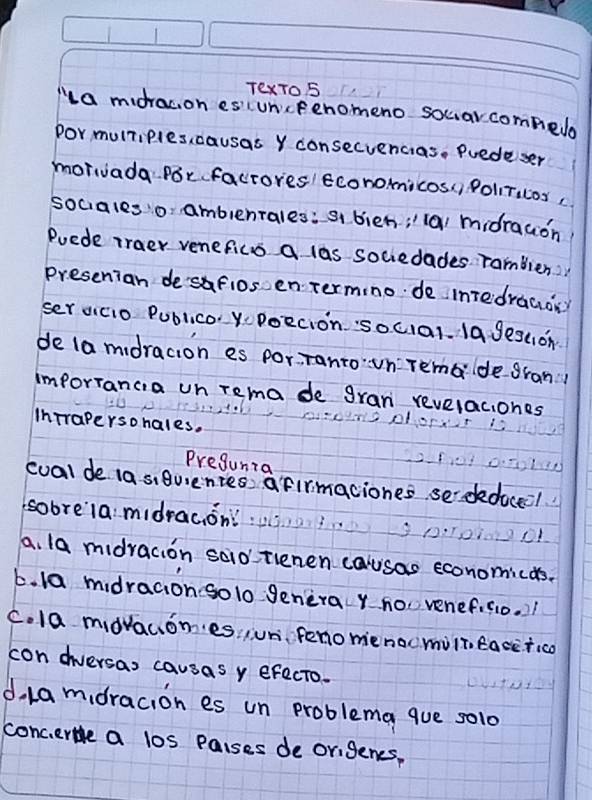 TEXTO 5
"La midracion es un fenomeno social complejo
por multiples causas y consecuencias. Puede ser
motivada por factores Economicos, Politicos
sociales o ambientales: si bien la midración
Puede traer veneficio a las sociedades también
presentan desafios en termino de intedración
servicio Publico y Poeción social. la gestión
de la midración es por tanto un tema de gran
importancia un tema de gran revelaciones
intrapersonales.
Pregunta
cual de la siguientes afirmaciones se deduce
sobre la midración:
a. la midración solo tienen causas economicas.
b. la midración solo genera y no veneficio.
c. la midración es un fenomeno multifacetico
con diversas causas y efecto.
d. La midración es un problema que solo
concierne a los paises de origenes.